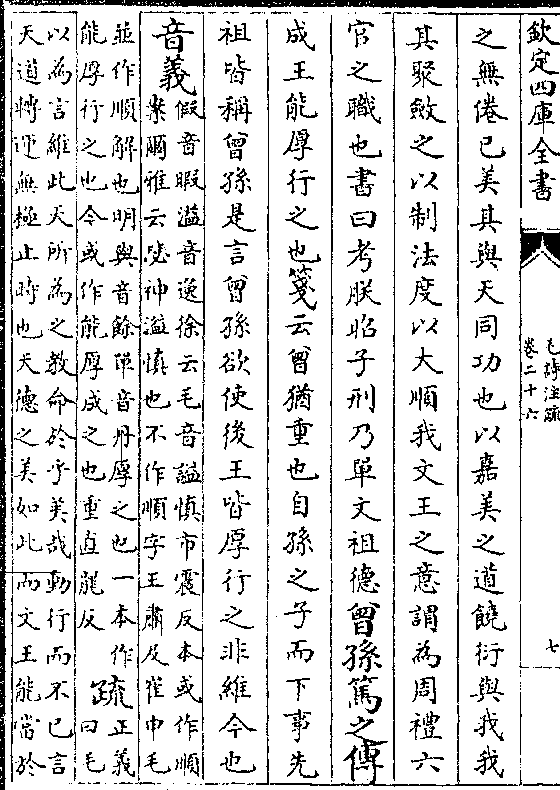 欽定四庫全書
毛詩注疏
卷二十六
七
之無倦已美其與天同功也以嘉美之道饒衍與我我
其聚斂之以制法度以大順我文王之意謂為周禮六
官之職也書曰考朕昭子刑乃單文祖德曾孫篤之傳
成王能厚行之也箋云曾猶重也自孫之子而下事先
祖皆稱曾孫是言曾孫欲使後王皆厚行之非維今也
音義
假音暇溢音逸徐云毛音謚慎市震反本或作順
案爾雅云毖神溢慎也不作順字王肅及崔申毛
並作順解也明與音餘單音丹厚之也一本作
能厚行之也今或作能厚成之也重直龍反
疏
正義
曰毛
以為言維此天所為之教命於乎美哉動行而不已言
天道轉運無極止時也天德之美如此而文王能當於